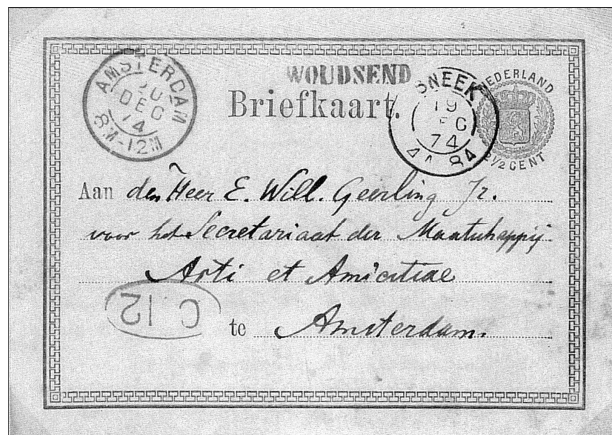 AMSTERDAM
DEC
74
8M-12M
WOUDSEND
Briefkaart.
SNEEK
19
74
NEDERLAND
2½ CENT
Aan den Heer E. Will. Geerling Jr.
voor het Secretariaat der Maatschappij
Arti et Amicitiae
C 12
te Amsterdam.